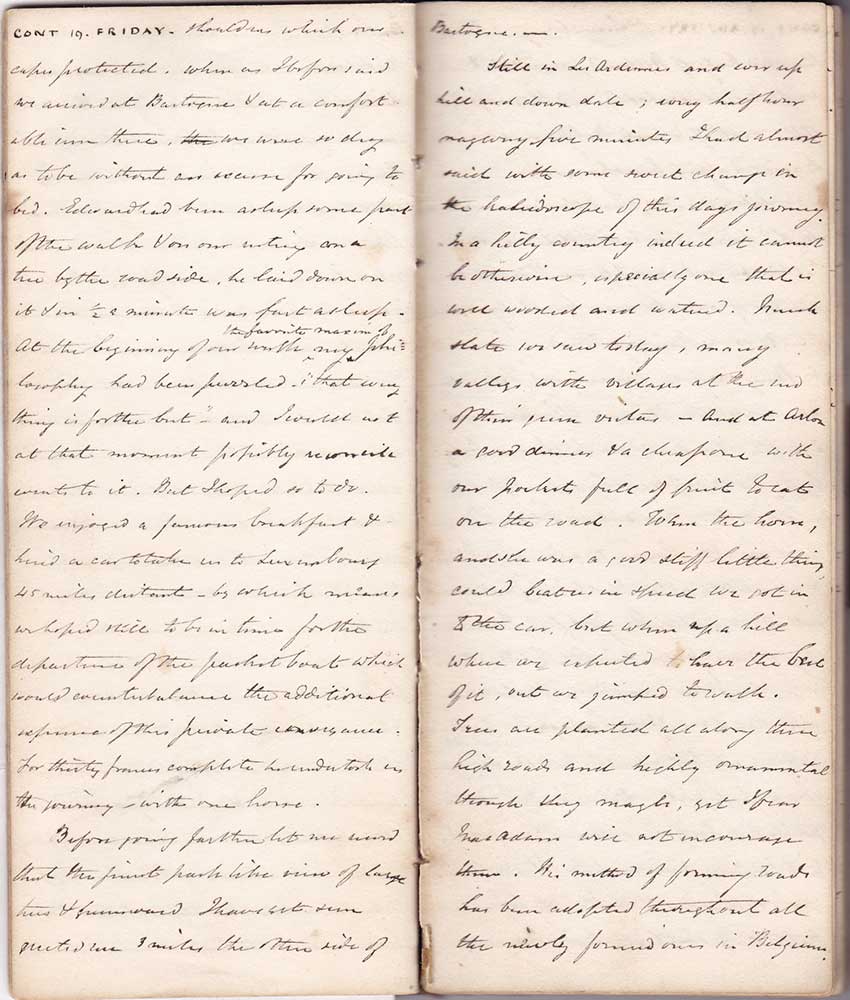 CONT 19. FRIDAY. shoulders which our
capes protected. When as I before said
we arrived at Bastogne & at a comfort
able inn there, the we were so dry
as to be without an excuse for going to
bed. Edward had been asleep some part
of the walk & on our resting on a
tree by the road side, he laid down on
it & in ½ a minute was fast asleep.
At the beginning of our walk the favorite maxim of my phi=
losophy had been puzzled. "that every
thing is for the best" and I could not
at that moment possibly reconcile
events to it. But I hoped so to do.
We enjoyed a famous breakfast &
hired a car to take us to Luxembourg
45 miles distant - by which means
we hoped still to be in time for the
departure of the packet boat which
would counterbalance the additional
expense of this private conveyance.
For thirty francs complete he undertook us
the journey - with one horse.
Before going further let me record
that the finest park like view of large
trees & greensward I have yet seen
greeted me 3 miles the other side of
Bastogne. —
Still in Les Ardennes and ever up
hill and down dale; every half hour
nay every five minutes I had almost
said with some sweet change in
the kaleidoscope of this days journey.
In a hilly country indeed it cannot
be otherwise, especially one that is
well wooded and watered. Much
slate we saw today, many
valleys with villages at the end
of their green vistas - And at Arlon
a good dinner & a cheap one with
our pockets full of fruit to eat
on the road. When the horse,
and she was a good stiff little thing,
could beat us in speed we got in
to the car, but when up a hill
where we expected to have the best
of it, out we jumped to walk.
Trees are planted all along these
high roads and highly ornamental
though they maybe, yet I fear
MacAdam will not encourage
them. His method of forming roads
has been adopted throughout all
the newly formed ones in Belgium.